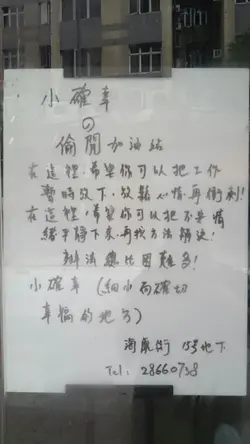 小確幸
の
偷閒加油站
在這裡,希望你可以把工作
暫時放下,放鬆心情,再衝刺!
在這裡,希望你可以把不要情
緒平靜下來,再找方法解決!
辦法總比困難多!
小確幸(細小而確切
幸福的地方)
海康街 15號地下
Tel: 28660738